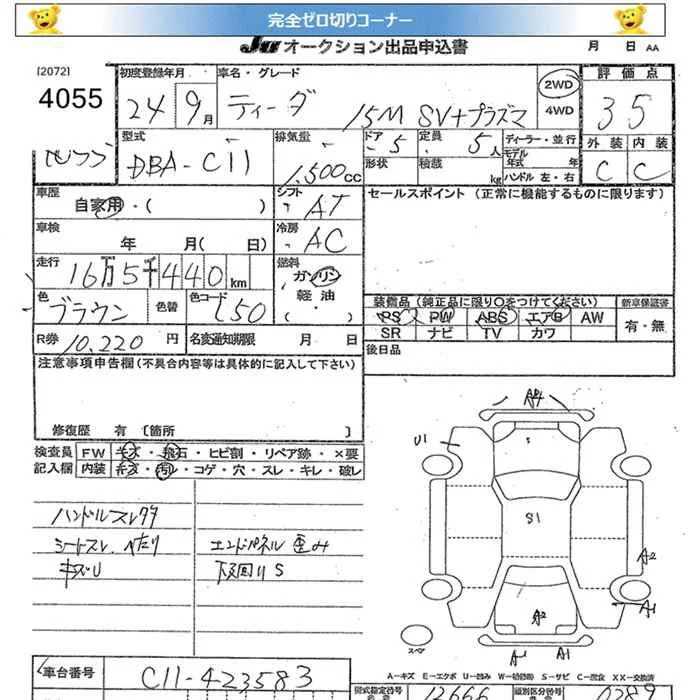 完全ゼロ切りコーナー
JU オークション出品申込書 月 日 AA
[2072]
4055
初度登録年月 24 9月
車名・グレード ティーダ 15M SV+プラズマ
2WD
4WD
評価点 35
外装 内装
C C
型式 DBA-C11
排気量 1,500cc
ドア 5 定員 5人
形状 積載 kg
ディーラー・並行
モデル年式 年
ハンドル 左・右
車歴 自家用・( )
シフト AT
セールスポイント (正常に機能するものに限ります)
車検 年 月( 日)
冷房 AC
走行 16万5千440km
燃料 ガソリン
軽油
・( )
色 ブラウン 色替 色コード L50
装備品 (純正品に限り○をつけてください) 新車保証書
PS PW ABS エアB AW 有・無
SR ナビ TV カワ
R券 10,220 円 名変通知期限 月 日
後日品
注意事項申告欄 (不具合内容等は具体的に記入して下さい)
修復歴 有 〔箇所 〕
検査員記入欄
FW キズ・飛石・ヒビ割・リペア跡・×要
内装 キズ・汚れ・コゲ・穴・スレ・キレ・破レ
ハンドルスレ
シートスレ、へたり エンドパネル 歪み
キズU 下廻りS
U1
S1
A2
A2
A1
A1
スペア
A-キズ E-エクボ U-凹み W-補修跡 S-サビ C-腐食 XX-交換済
車台番号 C11-423583
型式指定番号 類別区分番号